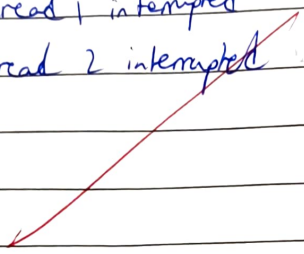 read 1 interrupted
read 2 interrupted